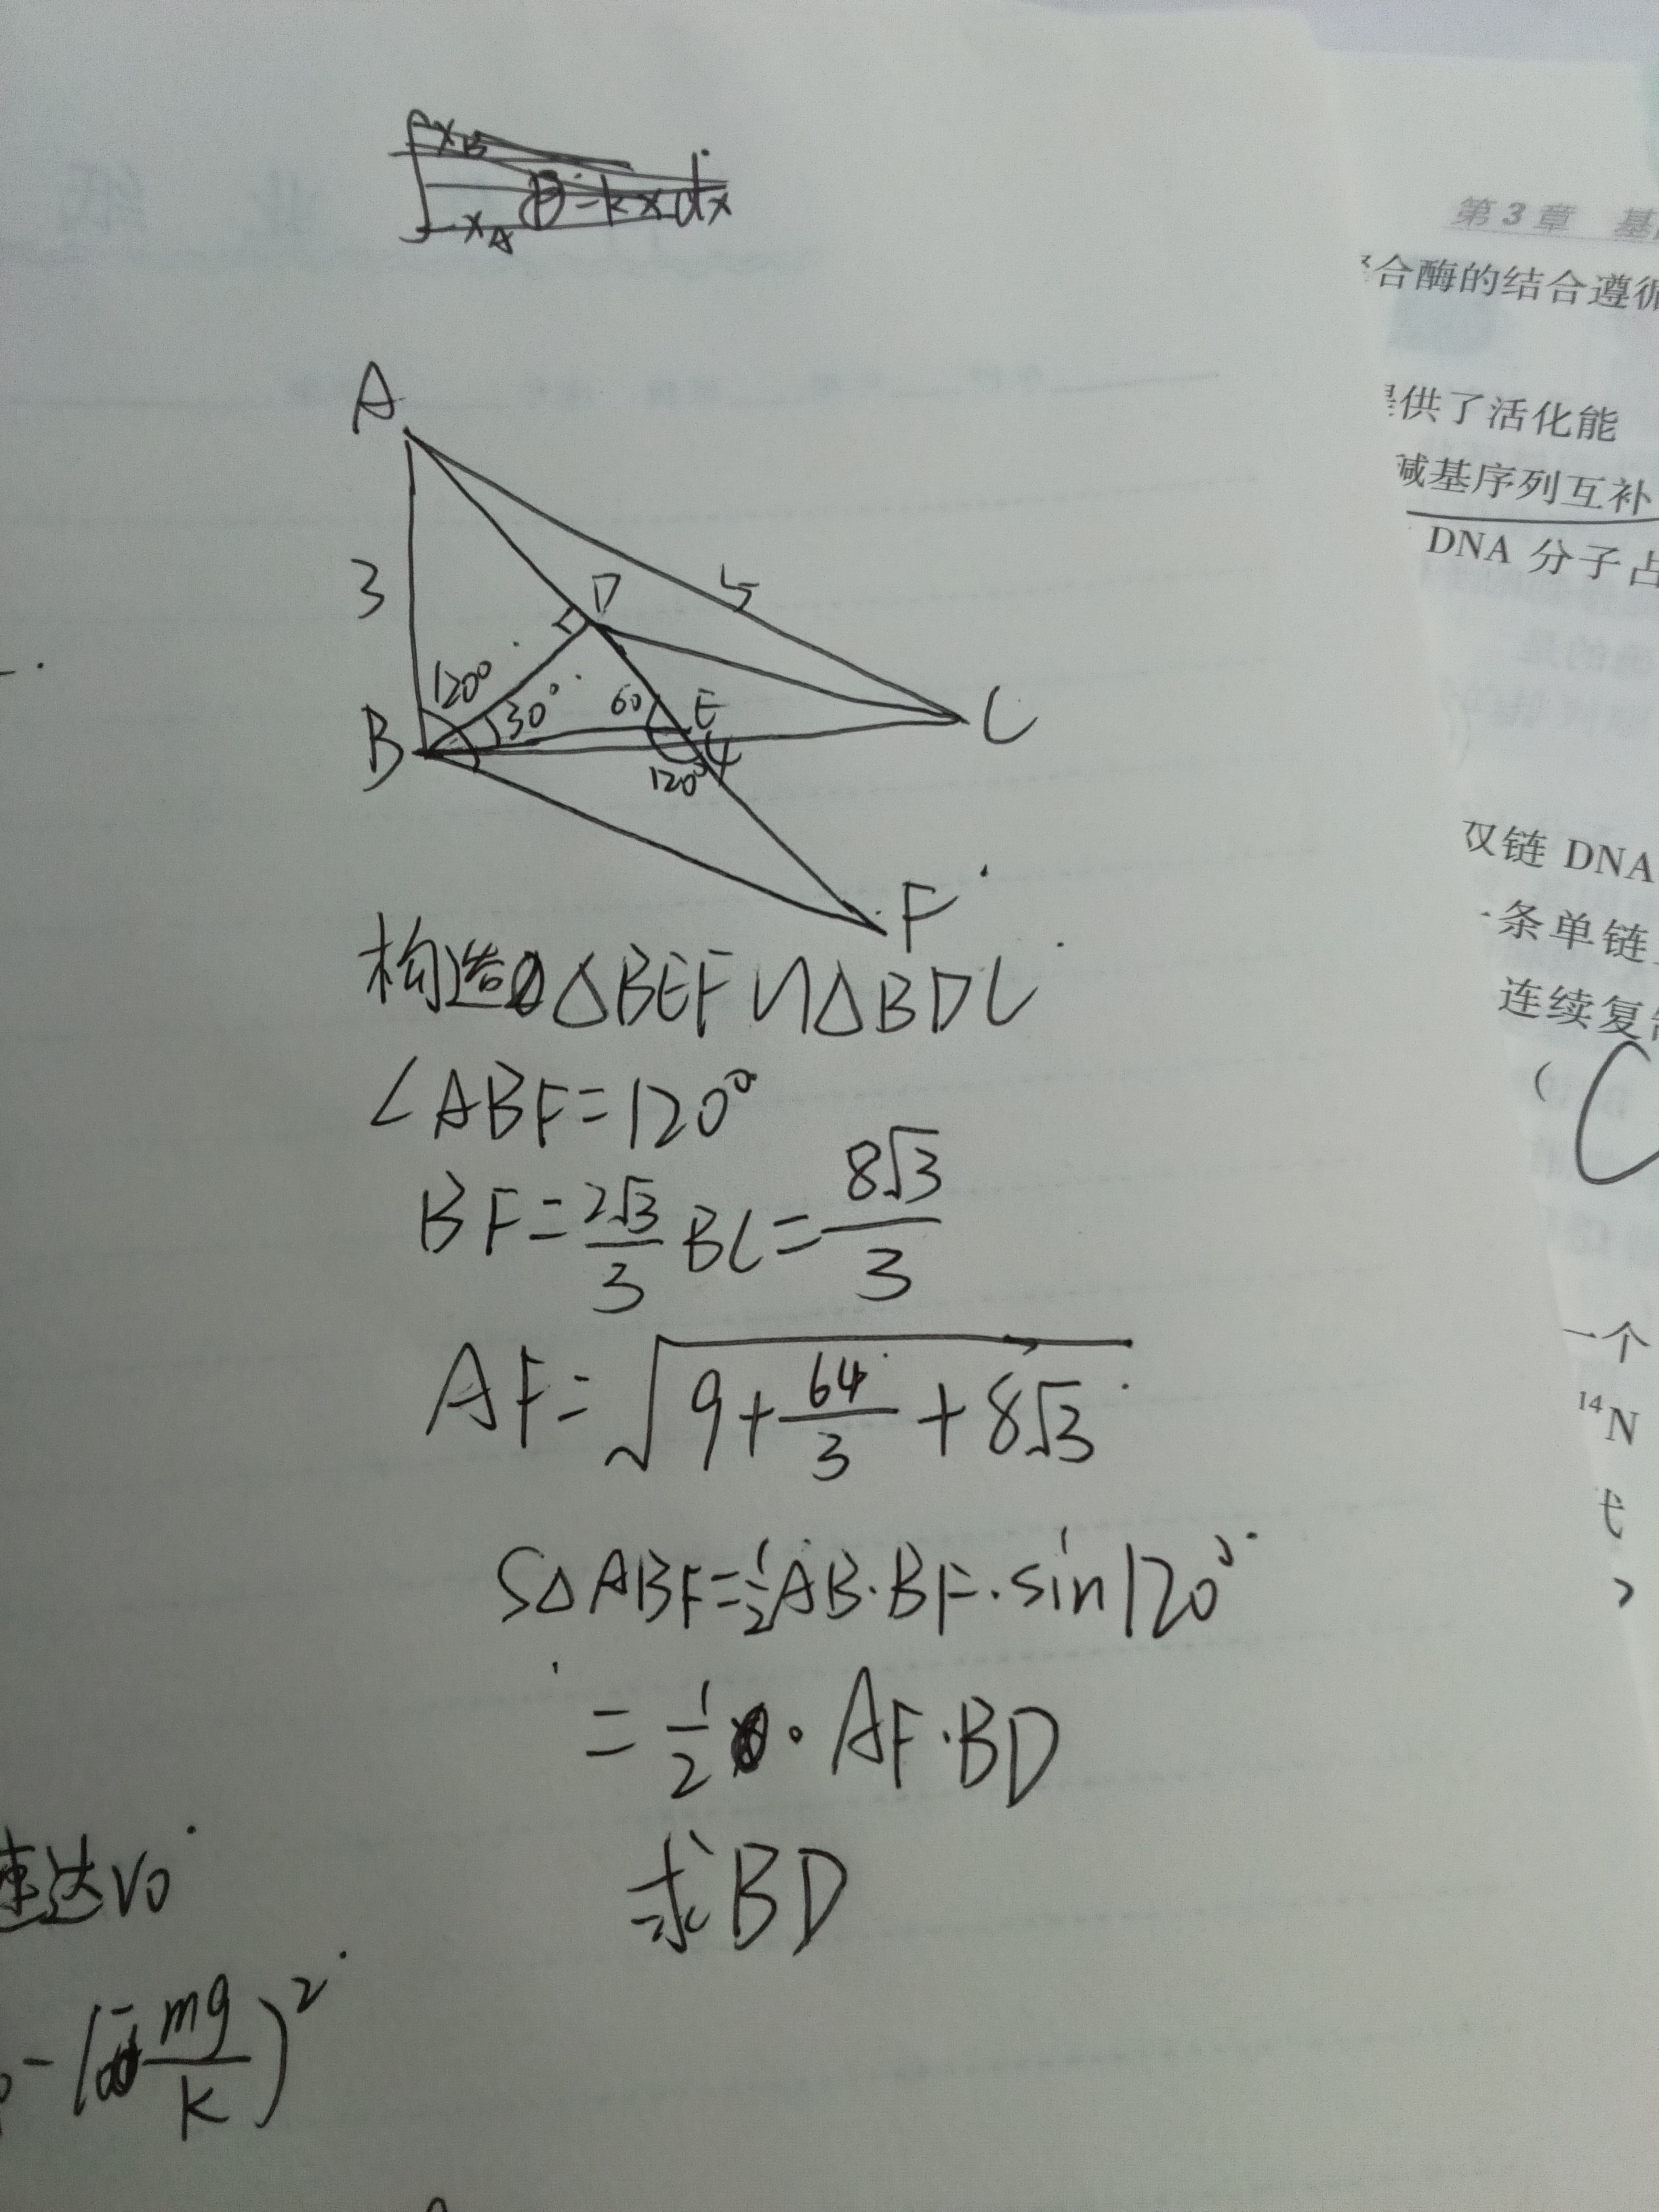 A
3
5
D
120°
30°
60
E
C
B
120°
4
F
构造△BEF∽△BDC
∠ABF=120°
BF=2√3/3 BC=8√3/3
AF=√(9+64/3+8√3)
S△ABF=1/2AB·BF·sin120°
=1/2·AF·BD
求BD
速达V0
mg
k
)²
第3章 基
合酶的结合遵循
供了活化能
碱基序列互补
DNA 分子占
双链 DNA
条单链
连续复制
(
C
一个
¹⁴N